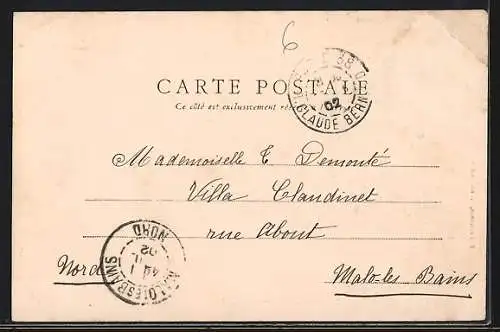 6
CARTE POSTALE
Ce côté est exclusivement
CLAUDE BERN
02
Mademoiselle E Demouté
Villa Claudinet
rue About
Nord
Malo-les Bains
MALO LES BAINS
02
NORD